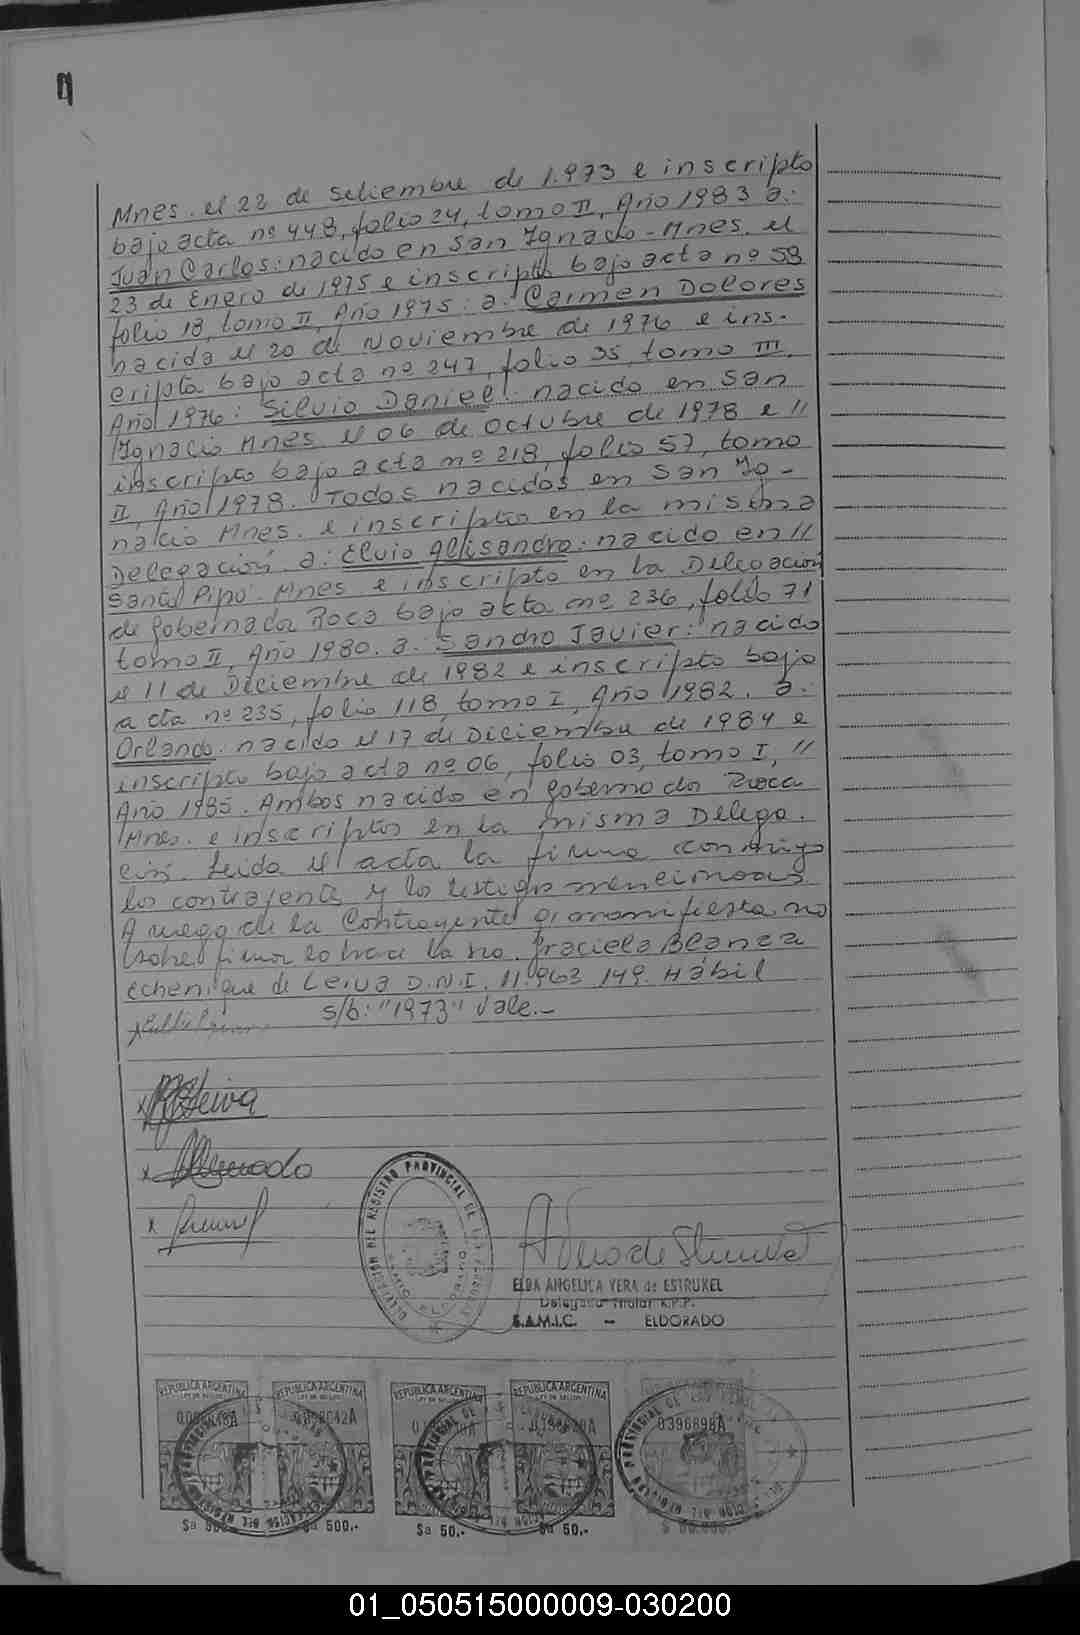 Mnes. el 22 de setiembre de 1.973 e inscripto
bajo acta nº 448, folio 24, tomo II, Año 1983 a:
Juan Carlos: nacido en San Ignacio - Mnes. el
23 de Enero de 1975 e inscripto bajo acta nº 58
folio 18, tomo II, Año 1975: a: Carmen Dolores
nacida el 20 de Noviembre de 1976 e ins-
cripta bajo acta nº 247, folio 35, tomo III,
Año 1976: Silvio Daniel: nacido en San
Ignacio Mnes. el 06 de Octubre de 1978 e //
inscripto bajo acta nº 218, folio 57, tomo
II, Año 1978. Todos nacidos en San Ig-
nacio Mnes. e inscriptos en la misma
Delegación. a: Elvio Alisandro: nacido en //
Santo Pipo - Mnes e inscripto en la Delegación
de Gobernador Roca bajo acta nº 236, folio 71
tomo II, Año 1980. a: Sandro Javier: nacido
el 11 de Diciembre de 1982 e inscripto bajo
acta nº 235, folio 118, tomo I, Año 1982. a:
Orlando: nacido el 17 de Diciembre de 1984 e
inscripto bajo acta nº 06, folio 03, tomo I, //
Año 1985. Ambos nacido en Gobernador Roca
Mnes. e inscriptos en la misma Delega-
ción. Leida el acta la firma conmigo
los contrayente y los testigos mencionados
A ruego de la Contrayente q' manifiesta no
saber firmar lo hace la sra. Graciela Blanca
Echenique de Leiva D.N.I. 11.963.149. Hábil
s/b: "1973" Vale.-
x
x Leiva
x
x
DIRECCION DEL REGISTRO PROVINCIAL DE LAS PERSONAS
ELBA ANGELICA VERA de ESTRUXEL
Delegada Titular R.P.P.
S.A.M.I.C. - ELDORADO
REPUBLICA ARGENTINA REPUBLICA ARGENTINA REPUBLICA ARGENTINA REPUBLICA ARGENTINA
0396898A
$a 500.- $a 50,- $a 50,-
01_050515000009-030200